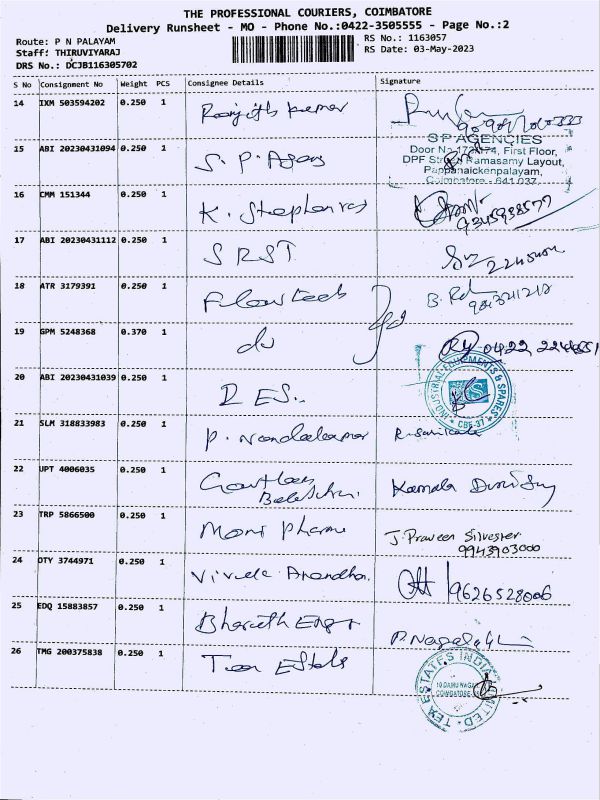 THE PROFESSIONAL COURIERS, COIMBATORE
Delivery Runsheet - MO - Phone No.:0422-3505555 - Page No.:2
Route: P N PALAYAM
Staff: THIRUVIYARAJ
DRS No.: DCJB116305702
RS No.: 1163057
RS Date: 03-May-2023
S No Consignment No Weight PCS Consignee Details Signature
14 IXM 503594202 0.250 1 Ranjith Kumar
15 ABI 20230431094 0.250 1 S. P. Agency
S P AGENCIES
Door No. First Floor,
DPF Street Ramasamy Layout,
Pappanaickenpalayam,
Coimbatore - 641 037
16 CMM 151344 0.250 1 K. Stephenraj
9345938577
17 ABI 20230431112 0.250 1 SRST
18 ATR 3179391 0.250 1 Flowtech
19 GPM 5248368 0.370 1 do
20 ABI 20230431039 0.250 1 RES..
INDUSTRIAL EQUIPMENTS & SPARES
CBE-37
21 SLM 318833983 0.250 1 P. Nandakumar
22 UPT 4006035 0.250 1 Kamala
23 TRP 5866500 0.250 1 Moni Pharma J. Praveen Silvester
9943903000
24 DTY 3744971 0.250 1 Vivek Anandha. 9626528006
25 EDQ 15883857 0.250 1 Bharath Engr
26 TMG 200375838 0.250 1 Tex Estate
TEX ESTATES INDIA LIMITED
COIMBATORE